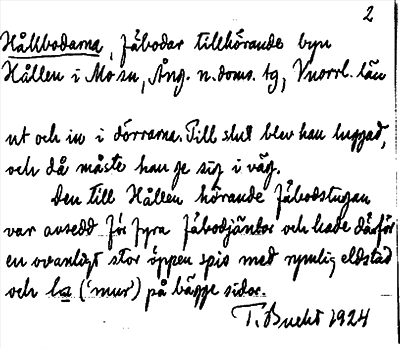 2
Hållbodarna, fäbodar tillhörande byn
Hållen i Mo sn, Ång. n. doms. tg, Vnorrl. län
ut och in i dörrarna. Till slut blev han luggad,
och då måste han ge sig i väg.
Den till Hållen hörande fäbodstugan
var avsedd för fyra fäbodjäntor och hade därför
en ovanligt stor öppen spis med rymlig eldstad
och la ('mur') på bägge sidor.
T. Bucht 1924